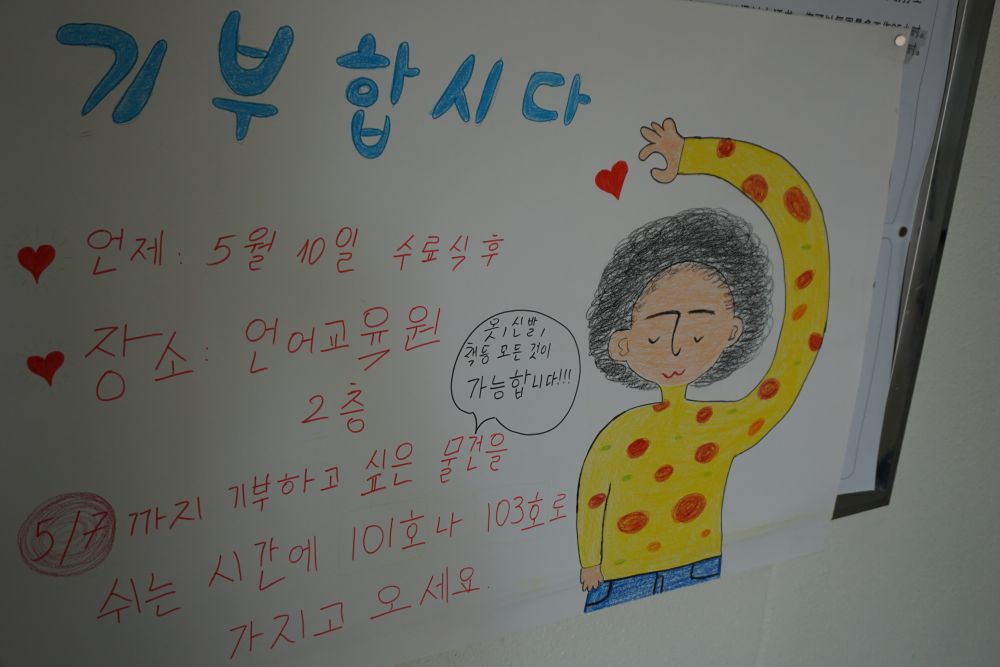 기부합시다
언제: 5월 10일 수료식 후
장소: 언어교육원
2층
옷, 신발,
책등 모든 것이
가능합니다!!!
5/7 까지 기부하고 싶은 물건을
쉬는 시간에 101호나 103호로
가지고 오세요.